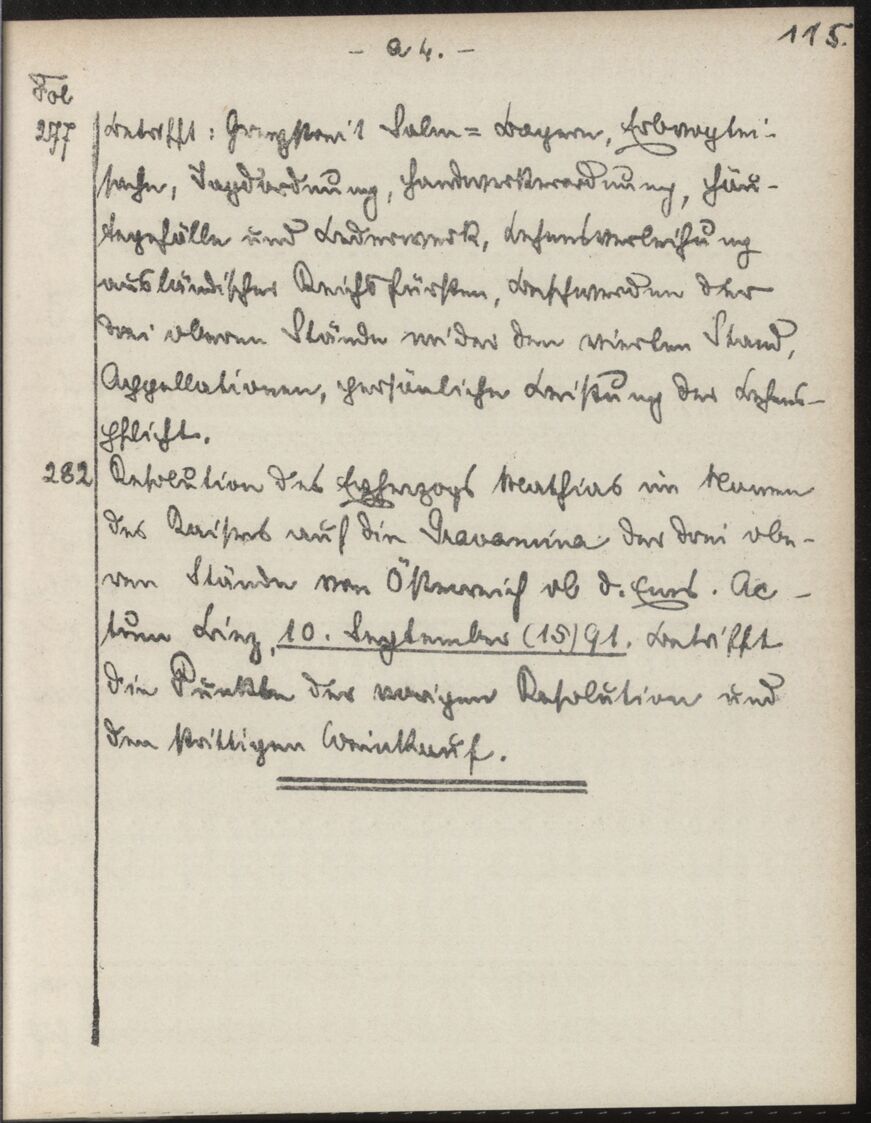 115.
- a 4. -
Fol
277 Betrifft: Grenzstreit Salm = Bayern, Erbvogtei-
sache, Jagdordnung, Handwerkerordnung, Häu-
tegefälle und Lederwerk, Lehensverleihung
ausländischer Reichsfürsten, Beschwerden der
drei oberen Stände wider den vierten Stand,
Appellationen, persönliche Leistung der Lehens-
pflicht.
282 Resolution des Erzherzogs Mathias im Namen
des Kaisers auf die Gravamina der drei obe-
ren Stände von Österreich ob d. Enns. Ac-
tum Linz, 10. September (15)91. Betrifft
die Punkte der vorigen Resolution und
den strittigen Weinkauf.